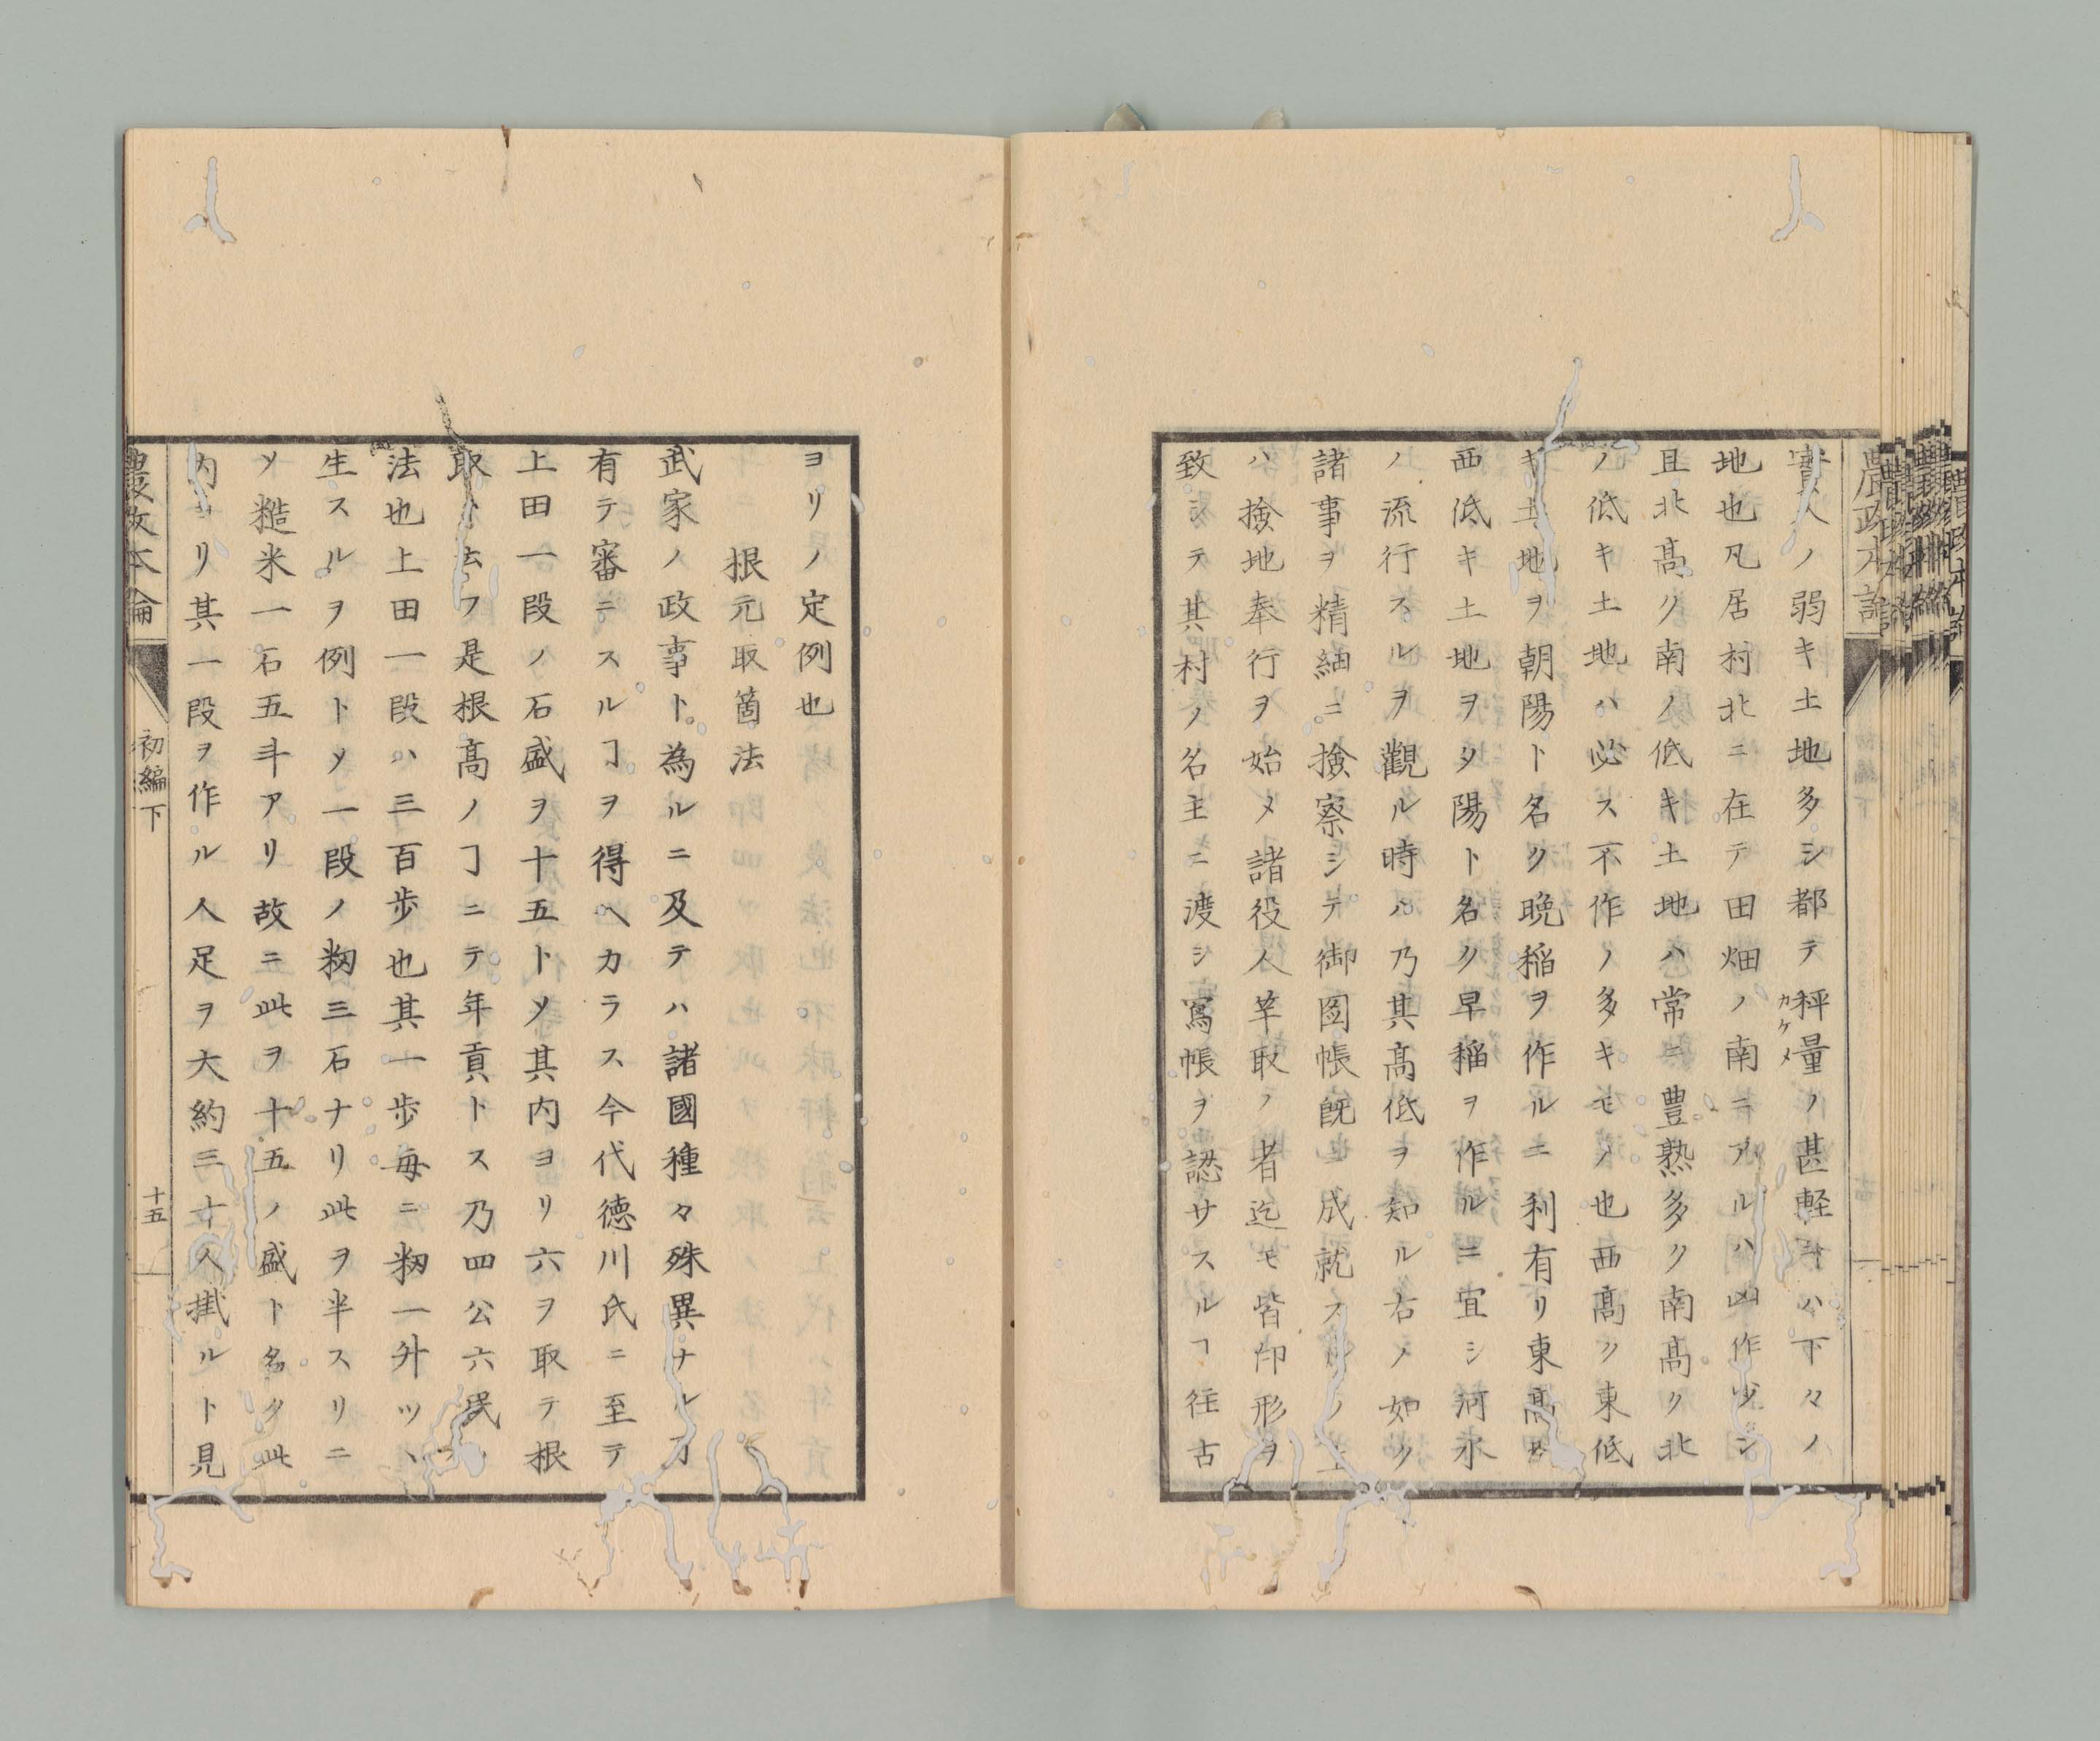 實入ノ弱キ土地多シ都テ秤量ノ甚軽キハ下々ノ
カケメ
地也凡居村北ニ在テ田畑ノ南ニアルハ凶作少シ
且北髙ク南ノ低キ土地ハ常ニ豊熟多ク南髙ク北
ノ低キ土地ハ必ス不作ノ多キモノ也西髙ク東低
キ土地ヲ朝陽ト名ク晩稲ヲ作ルニ利有リ東髙ク
西低キ土地ヲ夕陽ト名ク早稲ヲ作ルニ宜シ河水
ノ流行スルヲ觀ル時ハ乃其髙低ヲ知ル右ノ如ク
諸事ヲ精細ニ撿察シテ御圖帳既ニ成就スルノ上
ハ撿地奉行ヲ始メ諸役人竿取ノ者迄モ皆印形ヲ
致シテ其村ノ名主ニ渡シ寫帳ヲ認サスルヿ往古
ヨリノ定例也
根元取箇法
武家ノ政事ト為ルニ及テハ諸國種々殊異ナル刀
有テ審ニスルヿヲ得ヘカラス今代德川氏ニ至テ
上田一段ノ石盛ヲ十五トメ其内ヨリ六ヲ取テ根
取ト云フ是根髙ノヿニテ年貢トス乃四公六民ノ
法也上田一段ハ三百歩也其一歩毎ニ籾一升ツヽ
生スルヲ例トメ一段ノ籾三石ナリ此ヲ半スリニ
メ糙米一石五斗アリ故ニ此ヲ十五ノ盛ト名ク此
内ヨリ其一段ヲ作ル人足ヲ大約三十人掛ルト見
農政本論
初編下
十五